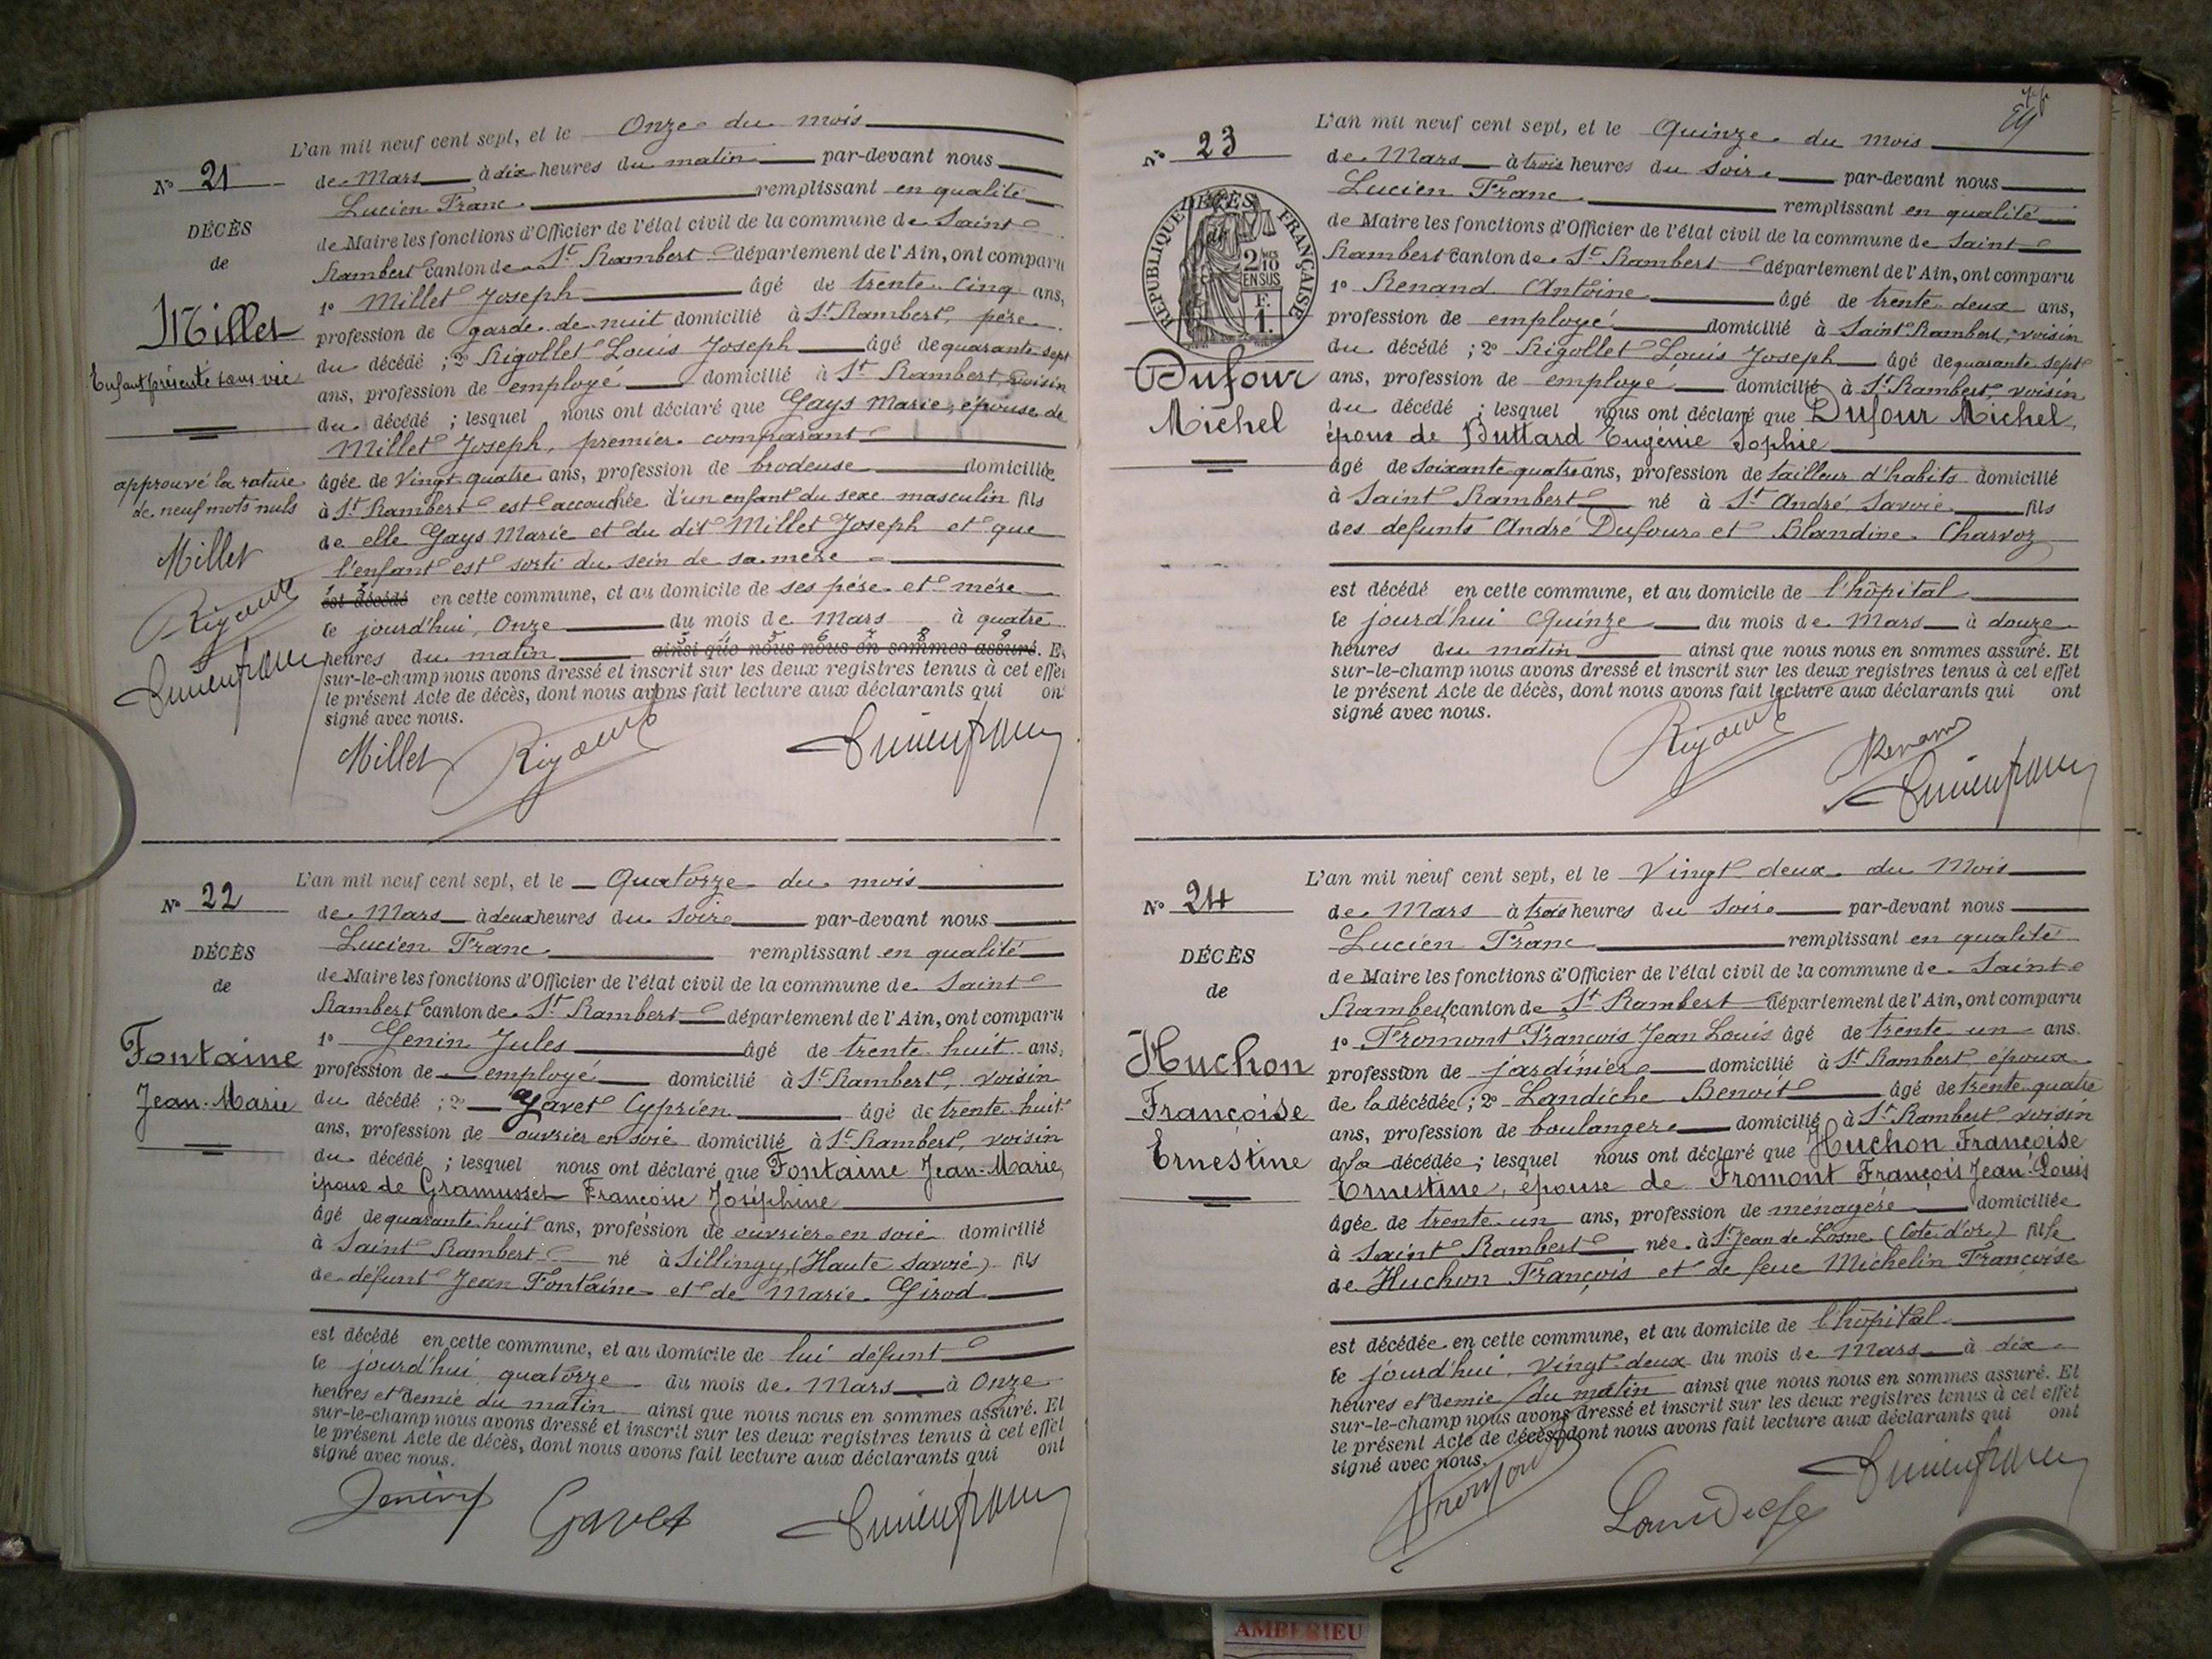 L'an mil neuf cent sept, et le Onze du mois
N° 21
de Mars à dix heures du matin par-devant nous
Lucien Franc remplissant en qualité
DÉCÈS
de Maire les fonctions d'Officier de l'état civil de la commune de Saint
de
Rambert canton de St Rambert département de l'Ain, ont comparu
1° Millet Joseph âgé de trente cinq ans,
Millet
profession de garde de nuit domicilié à St Rambert, père
du décédé ; 2° Rigollet Louis Joseph âgé de quarante sept
Enfant présenté sans vie
ans, profession de employé domicilié à St Rambert, voisin
du décédé ; lesquel nous ont déclaré que Gays Marie, épouse de
Millet Joseph, premier comparant
approuvé la rature
âgée de Vingt quatre ans, profession de brodeuse domiciliée
de neuf mots nuls
à St Rambert est accouchée d'un enfant du sexe masculin fils
de elle Gays Marie et du dit Millet Joseph et que
Millet
l'enfant est sorti du sein de sa mère
est décédé en cette commune, et au domicile de ses père et mère
le jourd'hui, Onze du mois de Mars à quatre
heures du matin ainsi que nous nous en sommes assuré. Et
sur-le-champ nous avons dressé et inscrit sur les deux registres tenus à cet effet
le présent Acte de décès, dont nous avons fait lecture aux déclarants qui ont
signé avec nous.
Millet
L'an mil neuf cent sept, et le Quatorze du mois
N° 22
de Mars à deux heures du soir par-devant nous
Lucien Franc remplissant en qualité
DÉCÈS
de Maire les fonctions d'Officier de l'état civil de la commune de Saint
de
Rambert canton de St Rambert département de l'Ain, ont comparu
1° Genin Jules âgé de trente huit ans,
Fontaine
profession de employé domicilié à St Rambert, voisin
Jean-Marie
du décédé ; 2° Gavet Cyprien âgé de trente huit
ans, profession de ouvrier en soie domicilié à St Rambert, voisin
du décédé ; lesquel nous ont déclaré que Fontaine Jean-Marie,
époux de Gramusset Françoise Joséphine
âgé de quarante huit ans, profession de ouvrier en soie domicilié
à Saint Rambert né à Sillingy, (Haute Savoie) fils
de défunt Jean Fontaine et de Marie Girod
est décédé en cette commune, et au domicile de lui défunt
le jourd'hui quatorze du mois de Mars à Onze
heures et demie du matin ainsi que nous nous en sommes assuré. Et
sur-le-champ nous avons dressé et inscrit sur les deux registres tenus à cet effet
le présent Acte de décès, dont nous avons fait lecture aux déclarants qui ont
signé avec nous.
Genin Gavet
L'an mil neuf cent sept, et le Quinze du mois
N° 23
de Mars à trois heures du soir par-devant nous
Lucien Franc remplissant en qualité
DÉCÈS
RÉPUBLIQUE FRANÇAISE
2/10 EN SUS
F. 1.
de Maire les fonctions d'Officier de l'état civil de la commune de Saint
Rambert canton de St Rambert département de l'Ain, ont comparu
1° Renand Antoine âgé de trente deux ans,
profession de employé domicilié à Saint Rambert, voisin
du décédé ; 2° Rigollet Louis Joseph âgé de quarante sept
Dufour
ans, profession de employé domicilié à St Rambert, voisin
Michel
du décédé ; lesquel nous ont déclaré que Dufour Michel,
époux de Buttard Eugénie Sophie
âgé de soixante quatre ans, profession de tailleur d'habits domicilié
à Saint Rambert né à St André Savoie fils
des defunts André Dufour et Blandine Charvoz
est décédé en cette commune, et au domicile de l'hôpital
le jourd'hui Quinze du mois de Mars à douze
heures du matin ainsi que nous nous en sommes assuré. Et
sur-le-champ nous avons dressé et inscrit sur les deux registres tenus à cet effet
le présent Acte de décès, dont nous avons fait lecture aux déclarants qui ont
signé avec nous.
L'an mil neuf cent sept, et le Vingt deux du Mois
N° 24
de Mars à trois heures du soir par-devant nous
Lucien Franc remplissant en qualité
DÉCÈS
de Maire les fonctions d'Officier de l'état civil de la commune de Saint
de
Rambert canton de St Rambert département de l'Ain, ont comparu
1° Fromont François Jean Louis âgé de trente un ans.
Huchon
profession de jardinier domicilié à St Rambert, époux
Françoise
de la décédée ; 2° Landiche Benoit âgé de trente quatre
ans, profession de boulanger domicilié à St Rambert voisin
Ernestine
de la décédée ; lesquel nous ont déclaré que Huchon Françoise
Ernestine, épouse de Fromont François Jean-Louis
âgée de trente un ans, profession de ménagère domiciliée
à Saint Rambert née à St Jean de Losne (Côte d'or) fille
de Huchon François et de feue Michelin Françoise
est décédée en cette commune, et au domicile de l'hôpital
le jourd'hui Vingt-deux du mois de Mars à dix
heures et demie du matin ainsi que nous nous en sommes assuré. Et
sur-le-champ nous avons dressé et inscrit sur les deux registres tenus à cet effet
le présent Acte de décès, dont nous avons fait lecture aux déclarants qui ont
signé avec nous.
AMBERIEU